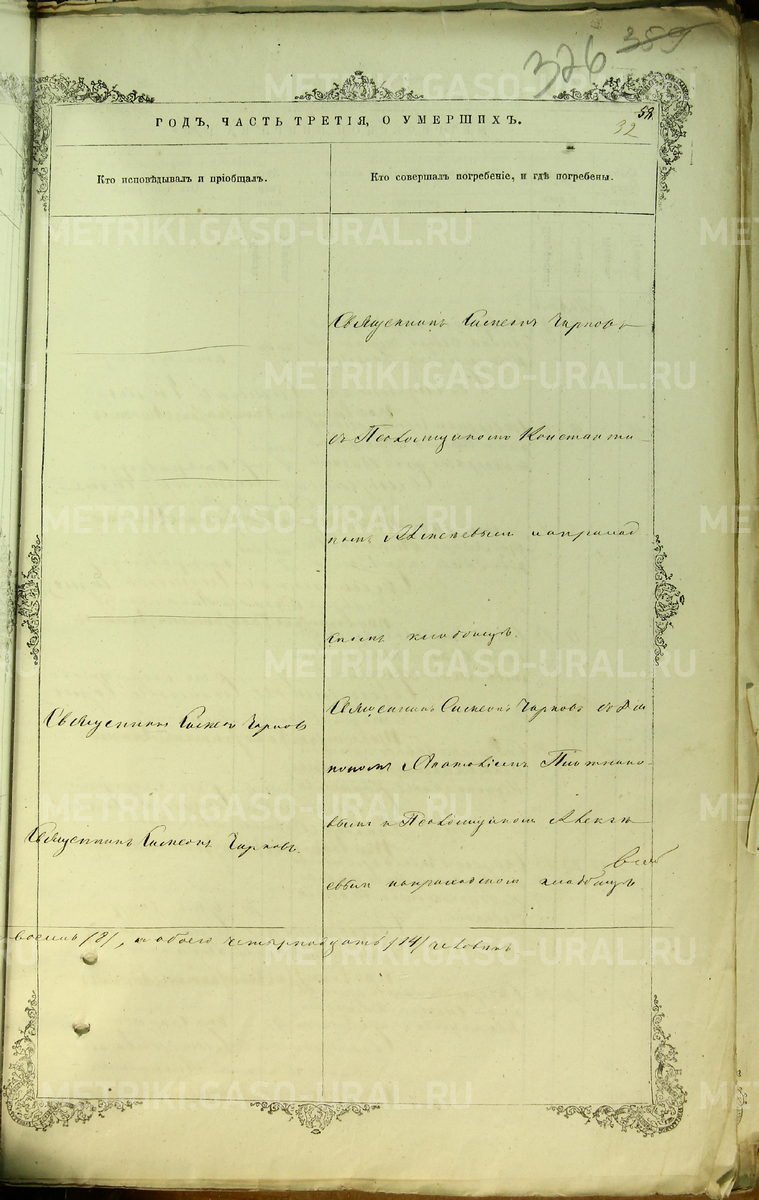 326 389
ГОДЪ, ЧАСТЬ ТРЕТІЯ, О УМЕРШИХЪ.
32
Кто исповѣдывалъ и пріобщалъ.
Кто совершалъ погребеніе, и гдѣ погребены.
Священникъ Симеонъ Чирковъ
съ Псаломщикомъ Константи
номъ наприход
скомъ кладбищѣ.
Священникъ Симеонъ Чирковъ
Священникъ Симеонъ Чирковъ съ Діа
кономъ Плотнико
вымъ и Псаломщикомъ Алексѣ
Священникъ Симеонъ Чирковъ.
евымъ наприходскомъ кладбищѣ
восемь /8/, а обоего четырнадцать /14/ человѣкъ
METRIKI.GASO-URAL.RU